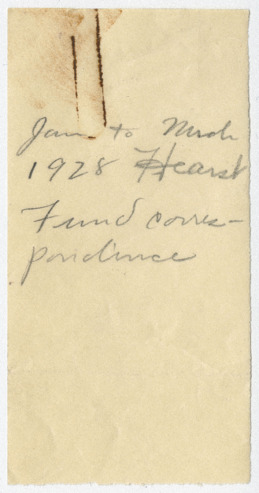 Jan to Mrch
1928 Hearst
Fund corres-
pondince